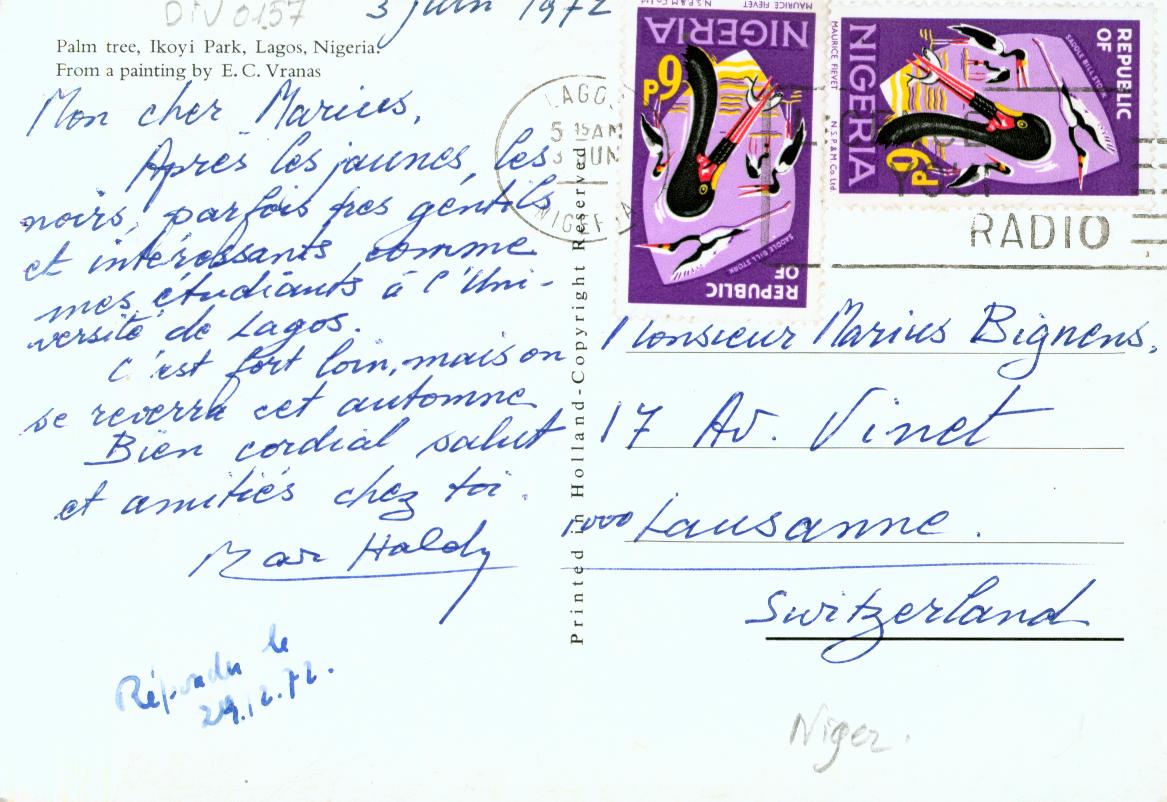 DIV 0157
3 juin 1972
Palm tree, Ikoyi Park, Lagos, Nigeria.
From a painting by E. C. Vranas
Mon cher Marius,
Après les jaunes, les
noirs, parfois très gentils
et intéressants comme
mes étudiants à l'Uni-
versité de Lagos.
C'est fort loin, mais on
se reverra cet automne
Bien cordial salut
et amitiés chez toi.
Marc Haldy
Répondu le
29.12.72.
Printed in Holland-Copyright Reserved
LAGOS
5 15AM
3 JUN
NIGERIA
MAURICE FIEVET N.S.P.& M.Co.Ltd
NIGERIA
9P
SADDLE BILL STORK
REPUBLIC
OF
MAURICE FIEVET N.S.P.& M.Co.Ltd
NIGERIA
9P
SADDLE BILL STORK
REPUBLIC
OF
RADIO
Monsieur Marius Bignens,
17 Av. Vinet
1000 Lausanne.
Switzerland
Niger.